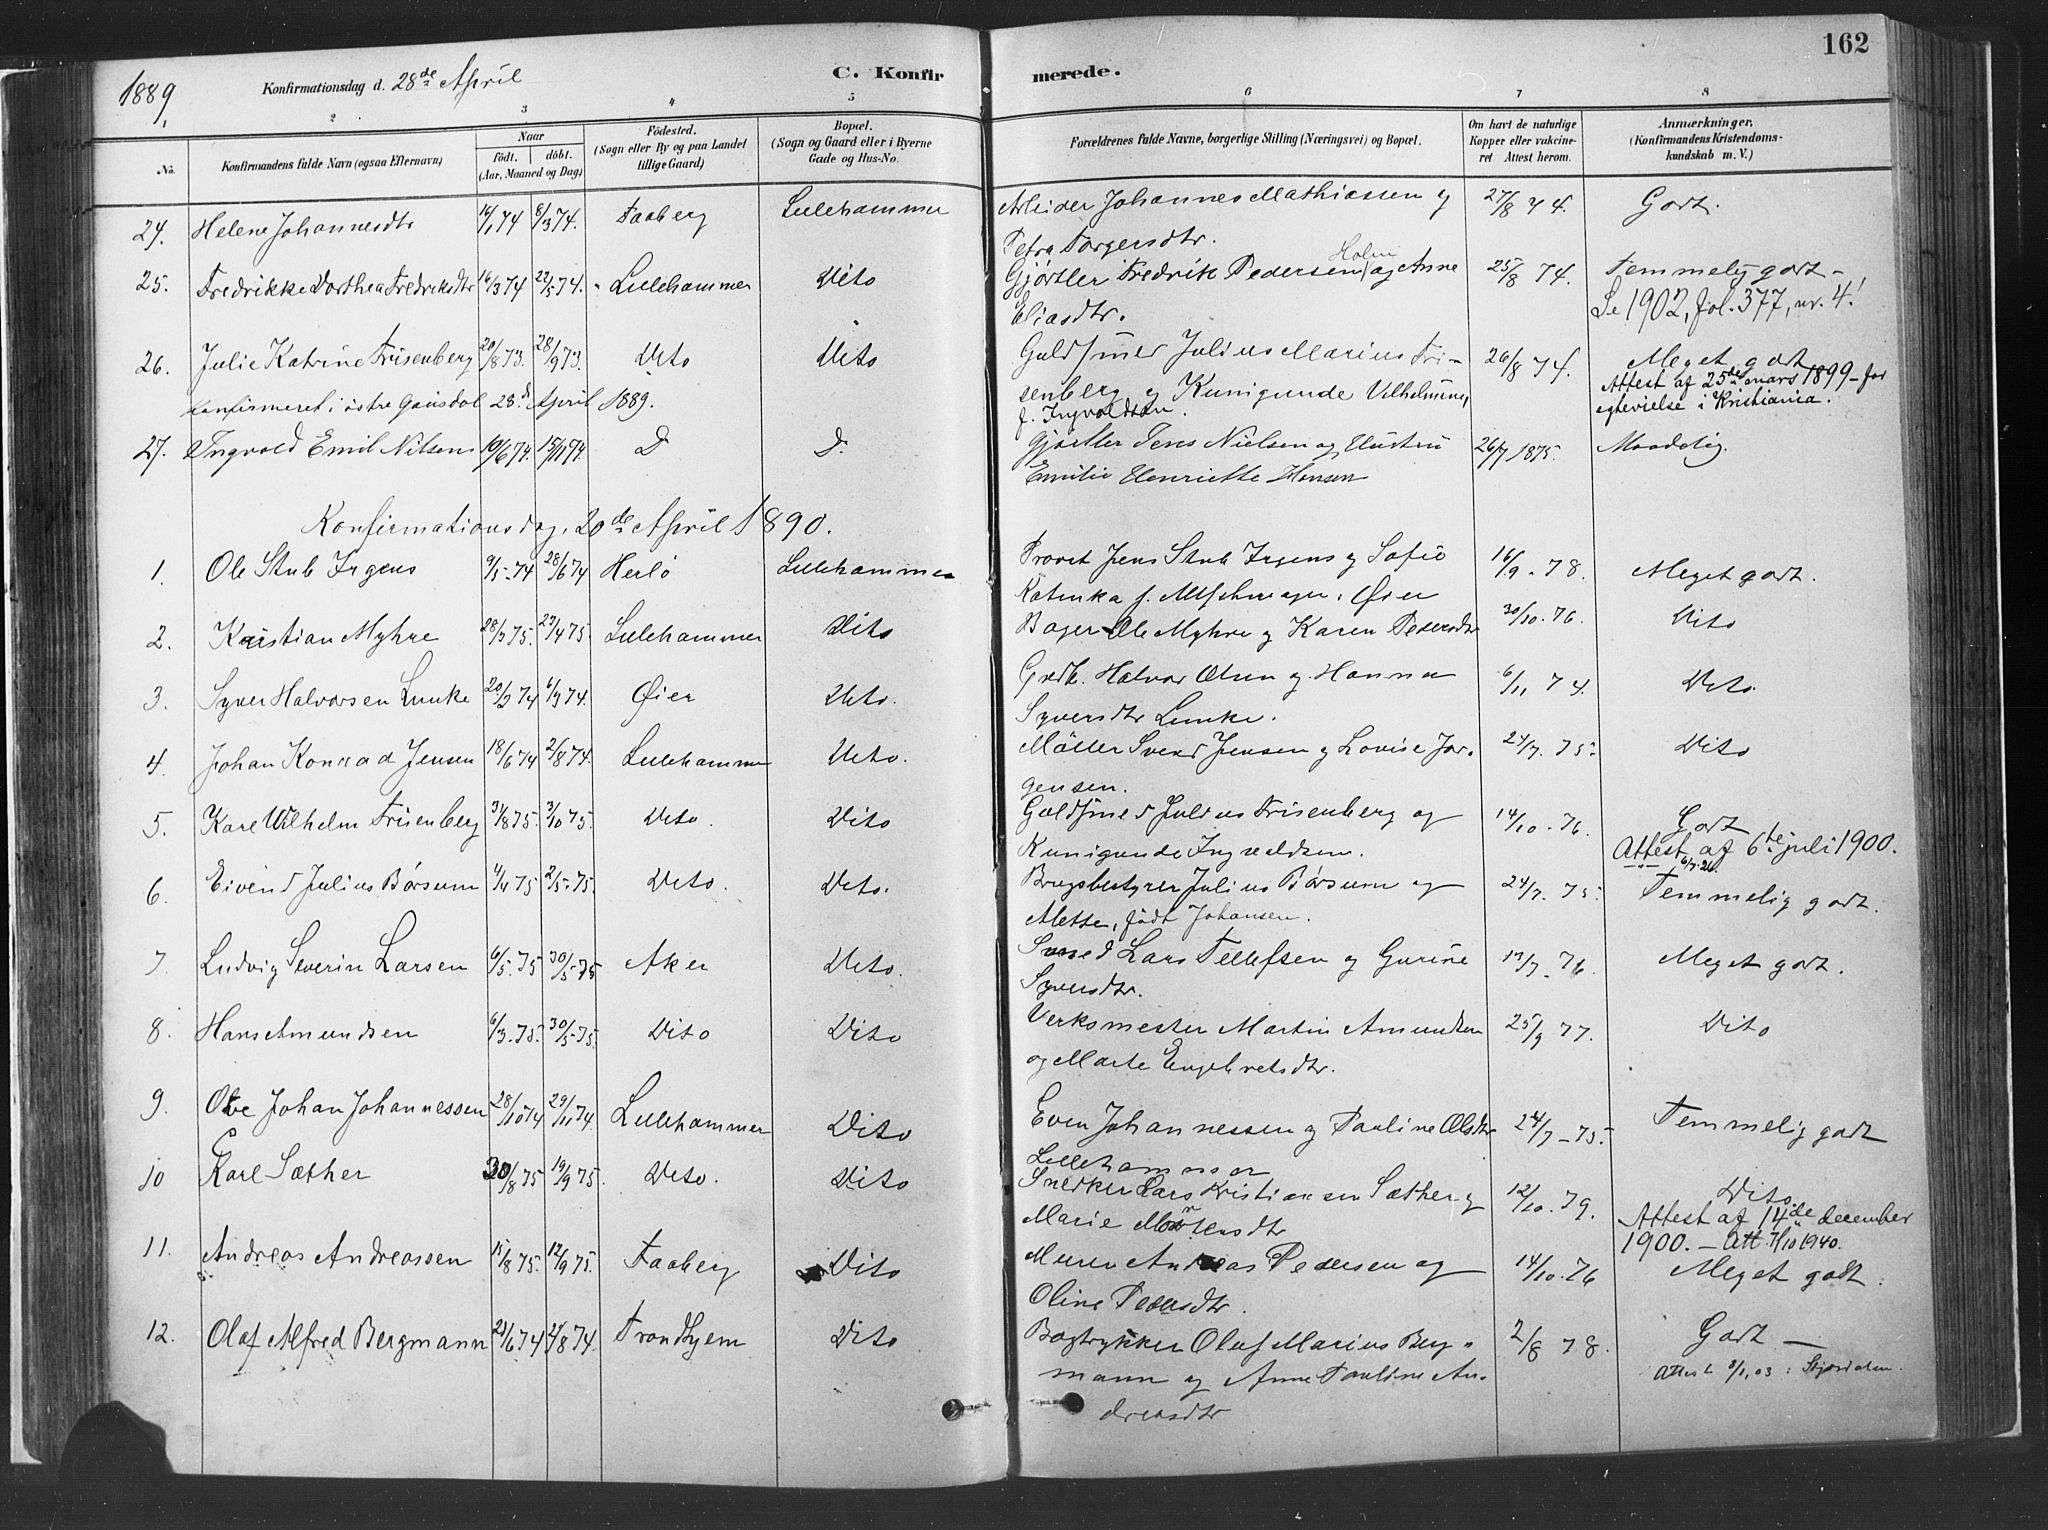 162
1889 Konfirmationsdag d. 28de April C. Konfirmerede.
1 2 3 4 5 6 7 8
No. Konfirmandens fulde Navn (ogsaa Efternavn) Naar født. døbt. (Aar, Maaned og Dag) Fødested. (Sogn eller By og paa Landet tillige Gaard) Bopæl. (Sogn og Gaard eller i Byerne Gade og Hus-No. Forældrenes fulde Navne, borgerlige Stilling (Næringsvei) og Bopæl. Om havt de naturlige Kopper eller vakcineret. Attest herom. Anmærkninger. (Konfirmandens Kristendomskundskab m. V.)
24. Helene Johannesdtr 16/1 74 8/3 74. Faaberg Lillehammer Arbeider Johannes Mathiassen og 27/8 74. Godt.
Petra Torgersdtr.
25. Fredrikke Dorthea Fredriksdtr 16/3 74 22/5 74. Lillehammer Dito Gjørtler Fredrik Pedersen Holm og Anne 25/8 74. Temmelig godt -
Eliasdtr. Se 1902, fol. 377, nr. 4!
26. Julie Katrine Frisenberg 20/8 73. 28/9 73. Dito Dito Guldsmed Julius Marius Fri- 26/8 74. Meget godt
konfirmeret i østre Gausdal 28de April 1889. senberg og Kunigunde Vilhelmine, Attest af 25de mars 1899 - for
f. Ingvoldsen. egtevielse i Kristiania.
27. Ingvold Emil Nilsen 10/6 74. 15/11 74. D D. Gjørtler Jens Nielsen og Hustru 26/7 1875. Maadelig.
Emilie Henriette Hansen
Konfirmationsdag, 20de April 1890.
1. Ole Stub Irgens 9/5 - 74 28/6 74 Herlø Lillehammer Provst Jens Stub Irgens og Sofie 16/9 - 78. Meget godt.
Katinka f. Øier
2. Kristian Myhre 28/2 75. 27/4 75. Lillehammer Dito Bager Ole Myhre og Karen Pedersdtr 30/10. 76. Dito
3. Syver Halvorsen Lunke 20/2 74 6/3 74. Øier Dito. Grdb. Halvor Olsen og Hanna 6/11 74. Dito.
Syversdtr Lunke.
4. Johan Konrad Jensen 18/6 74 2/8 74. Lillehammer Dito. Møller Svend Jensen og Lovise Jør- 24/7. 75. Dito
gensen.
5. Karl Wilhelm Frisenberg 31/8 75. 3/10 75. Dito. Dito Guldsmed Julius Frisenberg og 14/10 - 76. Godt
Kunigunde Ingvaldsen. Attest af 6te juli 1900.
6. Eivind Julius Børsum 4/4 75 2/5 - 75. Dito. Dito. Brugsbestyrer Julius Børsum og 24/7. 75. Temmelig godt.
Mette, født Johansen.
7 Ludvig Severin Larsen 6/5. 75 30/5 75 Aker Dito. Smed Lars Tellefsen og Gurine 13/7 - 76. Meget godt.
Syversdtr.
8. Hans Amundsen 6/3 - 75. 30/5 - 75. Dito Dito Verksmester Martin Amundsen 25/9 77. Dito
og Marte Engebretsdtr.
9. Ole Johan Johannessen 28/10 74 29/11 74. Lillehammer Dito Even Johannessen og Pauline Olsdtr 24/7 - 75. Temmelig godt
Lillehammer
10 Karl Sæther 30/8 75 19/9 75. Dito. Dito Snedker Lars Kristiansen Sæther og 12/10. 79. Dito.
Marie Mortensdtr Attest af 14de december
1900. - Att. 7/10 1940.
11. Andreas Andreassen 15/8 75. 12/9 75. Faaberg Dito Murer Andreas Pedersen og 14/10. 76 Meget godt.
Oline Pedersdtr.
12. Olaf Alfred Bergmann 23/6 74 2/8 74. Trondhjem Dito Bogtrykker Oluf Marius Berg- 2/8 78. Godt -
mann og Anne Pauline An- Attest 8/1, 03 : Stjørdalen.
dreasdtr